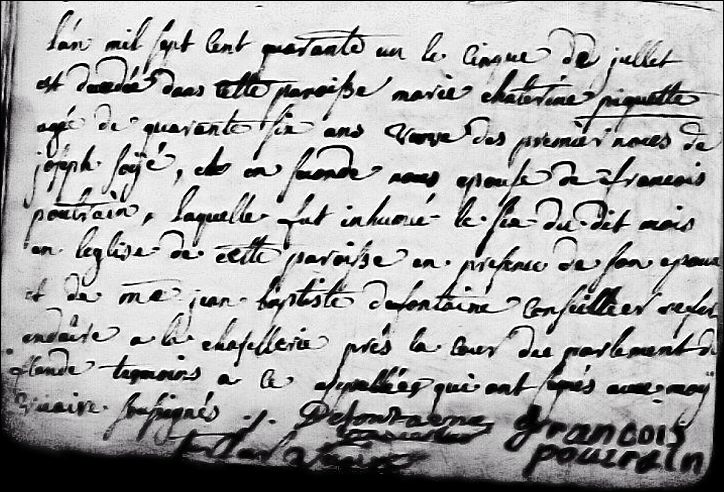 lán mil sept Cent quarante un le cinque de juillet
est decedée dans cette paroisse marie chaterine piquette
agée de quarante six ans veuve des premier noces de
joseph soÿé, et en seconde noces epouse de francois
poutrain, laquelle fut inhumé le six du dit mois
en leglise de cette paroisse en presence de son epoux
et de me jean baptiste defontaine Conseiller refer
endaire a la chasellerie près la cour du parlement de
flande temoins a ce appellées qui ont signés avec moÿ
vicaire soussignés ./. Defontaine francois
pouirain